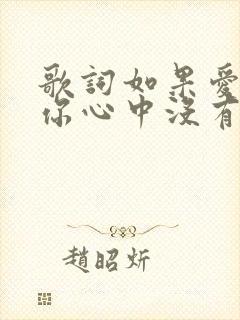 歌詞如果愛
你心中沒有
趙昭炘